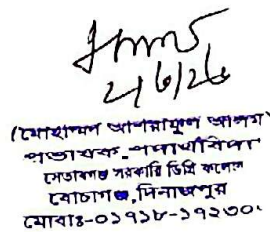 ২১/৬/২৬
(মোহাম্মদ আশরাফুল আলম)
প্রভাষক-পদার্থবিদ্যা
সেতাবগঞ্জ সরকারি ডিগ্রি কলেজ
বোচাগঞ্জ, দিনাজপুর
মোবাঃ-০১৭১৮-১৭২৩০